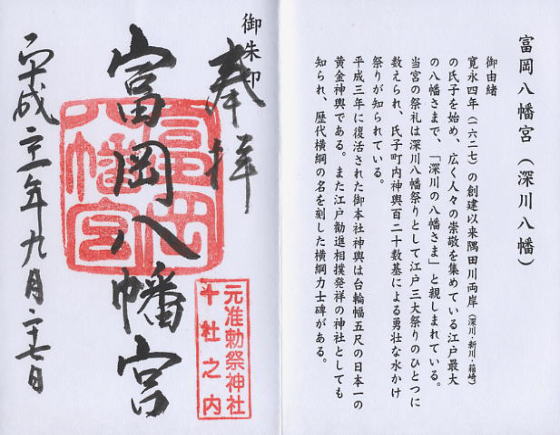 富岡八幡宮（深川八幡）
御由緒
寛永四年（一六二七）の創建以来隅田川両岸（深川・新川・箱崎）
の氏子を始め、広く人々の崇敬を集めている江戸最大
の八幡さまで、「深川の八幡さま」と親しまれている。
当宮の祭礼は深川八幡祭りとして江戸三大祭りのひとつに
数えられ、氏子町内神輿百二十数基による勇壮な水かけ
祭りが知られている。
平成三年に復活された御本社神輿は台輪幅五尺の日本一の
黄金神輿である。また江戸勧進相撲発祥の神社としても
知られ、歴代横綱の名を刻した横綱力士碑がある。
御朱印
奉拝
元准勅祭神社
十社之内
富岡八幡宮
富岡
八幡宮
平成二十一年九月二十七日